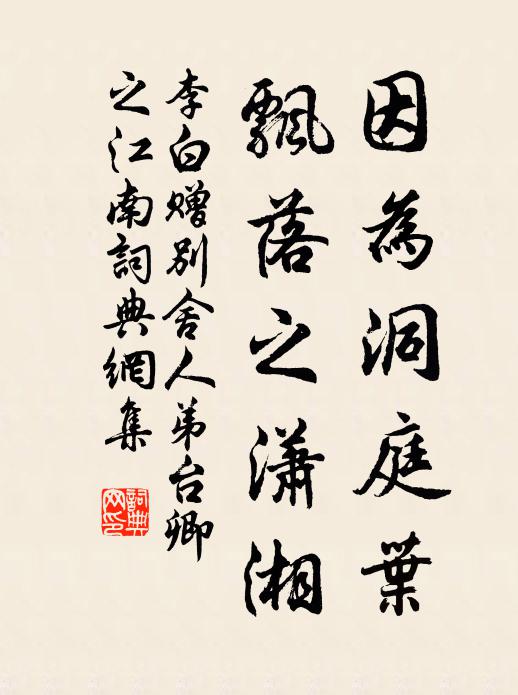 因為洞庭葉
飄落之瀟湘
李白贈別舍人弟台卿
之江南詞典網集
詞典網印